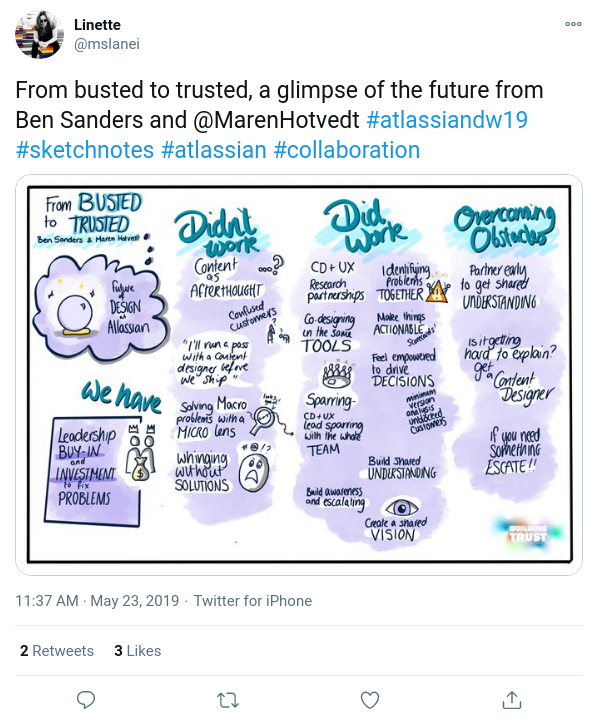 Linette
@mslanei
From busted to trusted, a glimpse of the future from
Ben Sanders and @MarenHotvedt #atlassiandw19
#sketchnotes #atlassian #collaboration
From BUSTED
to TRUSTED
Ben Sanders & Maren Hotvedt
Future
of
DESIGN
at
Atlassian
We have
Leadership
BUY-IN
and
INVESTMENT
to fix
PROBLEMS
Didn't
work
Content
as
AFTERTHOUGHT
...?
Confused
customers
?
"I'll run a pass
with a content
designer before
we ship"
Solving Macro
problems with a
MICRO lens
Whinging
without
SOLUTIONS
*@!?
Did
Work
CD + UX
Research
partnerships
Co-designing
in the same
TOOLS
Sparring-
CD+UX
Lead sparring
with the whole
TEAM
Build awareness
and escalating
Identifying
problems
TOGETHER
Make things
ACTIONABLE
Feel empowered
to drive
DECISIONS
minimum
version
analysis
customers
Build Shared
UNDERSTANDING
Create a shared
VISION
Overcoming
Obstacles
Partner early
to get shared
UNDERSTANDING
Is it getting
hard to explain?
get
a Content
Designer
If you need
something
ESCATE!!
BUILDING
TRUST
11:37 AM · May 23, 2019 · Twitter for iPhone
2 Retweets 3 Likes